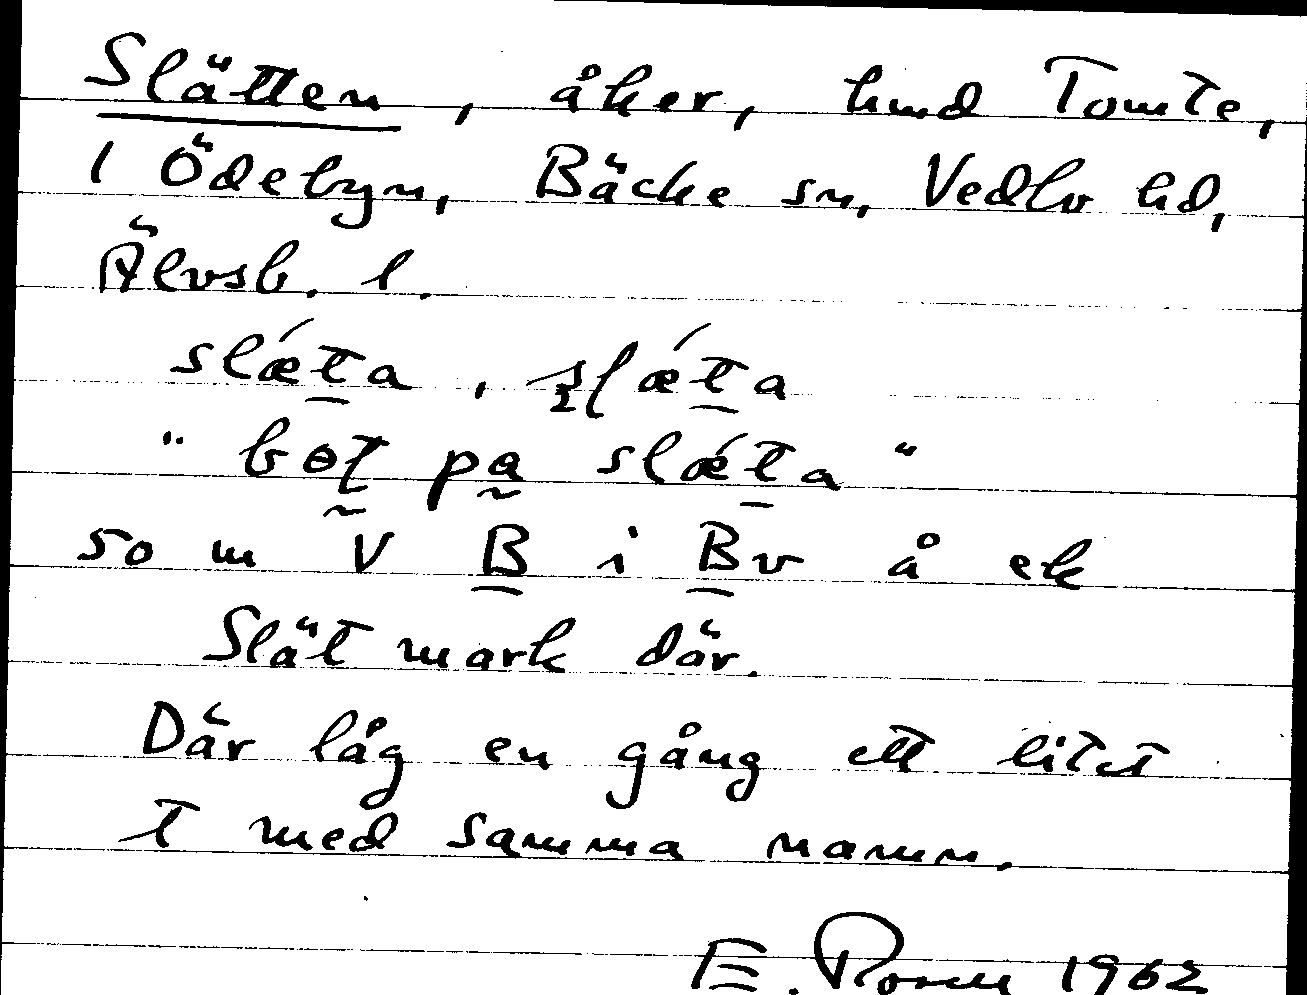 Slätten, åker, hmd Tomte,
1 Ödebyn, Bäcke sn, Vedbo hd,
Älvsb. l.
slǽt̲a, s̲lǽt̲a
"bo̵t̰ pa̰ slǽt̲a"
so m V B̲ i B̲v å ek
Slät mark där.
Där låg en gång ett litet
t med samma namn.
E. 1962